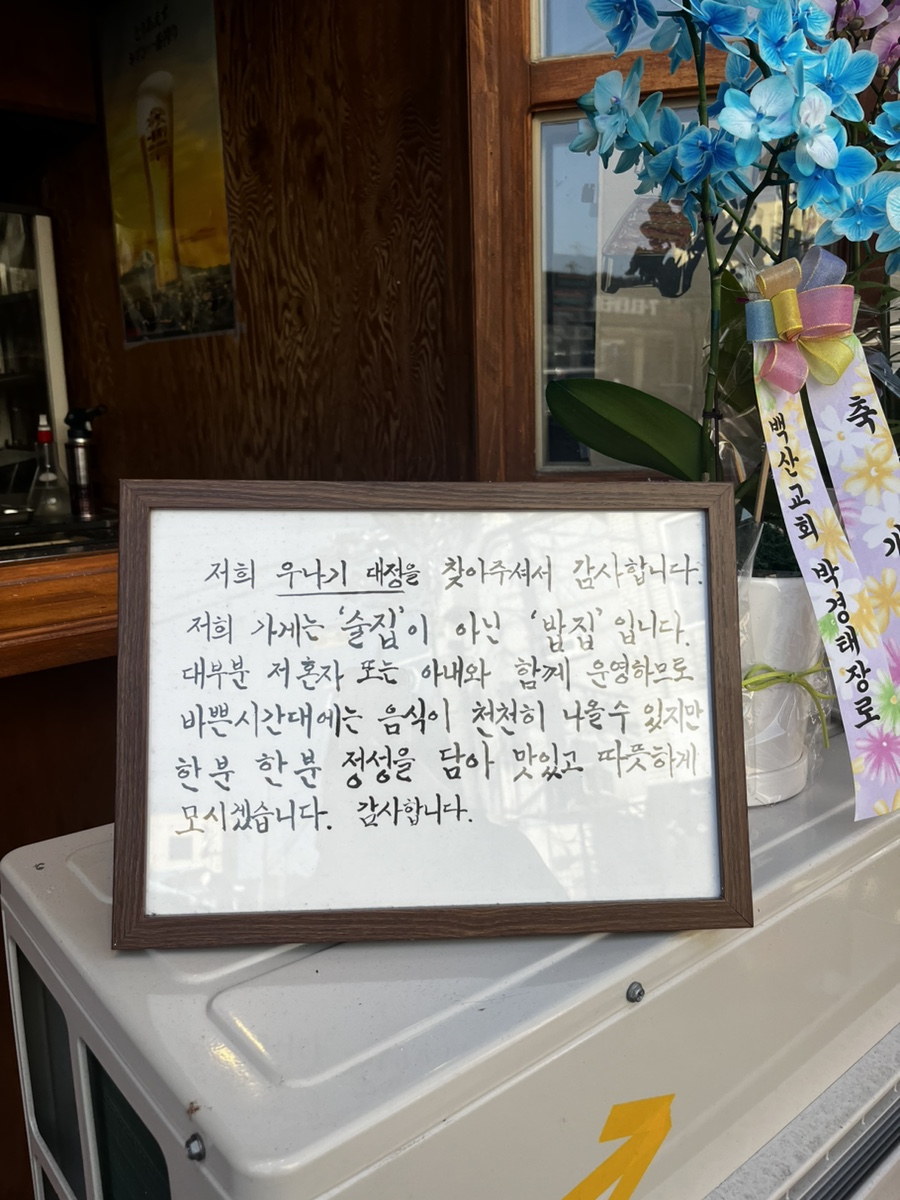 저희 우나기 대정을 찾아주셔서 감사합니다.
저희 가게는 '술집'이 아닌 '밥집' 입니다.
대부분 저 혼자 또는 아내와 함께 운영하므로
바쁜시간대에는 음식이 천천히 나올수 있지만
한분 한분 정성을 담아 맛있고 따뜻하게
모시겠습니다. 감사합니다.
백산교회 박경태장로
축